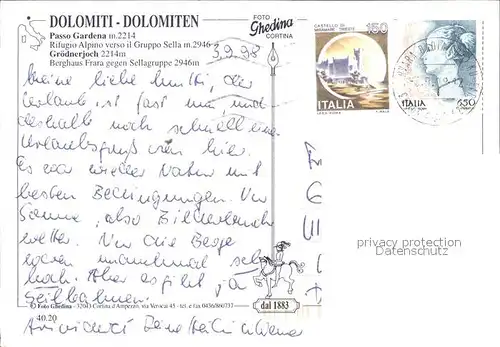 DOLOMITI - DOLOMITEN
Passo Gardena m.2214
Rifugio Alpino verso il Gruppo Sella m.2946
Grödnerjoch 2214m
Berghaus Frara gegen Sellagruppe 2946m
FOTO
Ghedina
CORTINA
3.9.98
CASTELLO DI
MIRAMARE-TRIESTE
150
ITALIA
ITALIA
650
Meine liebe Mutti, der
Urlaub ist fast um, und
deshalb noch schnell einen
Urlaubsgruß von hier.
Es war wieder Natur mit
besten Bedingungen. Nur
Sonne, also Bilderbuch
wetter. Nur die Berge
waren manchmal sehr
hoch. Aber es gibt ja
Seilbahnen.
© Foto Ghedina - 32043 Cortina d'Ampezzo, via Verocai 45 - tel. e fax 0436/860737
dal 1883
40.20
privacy protection
veryimportantlot.com